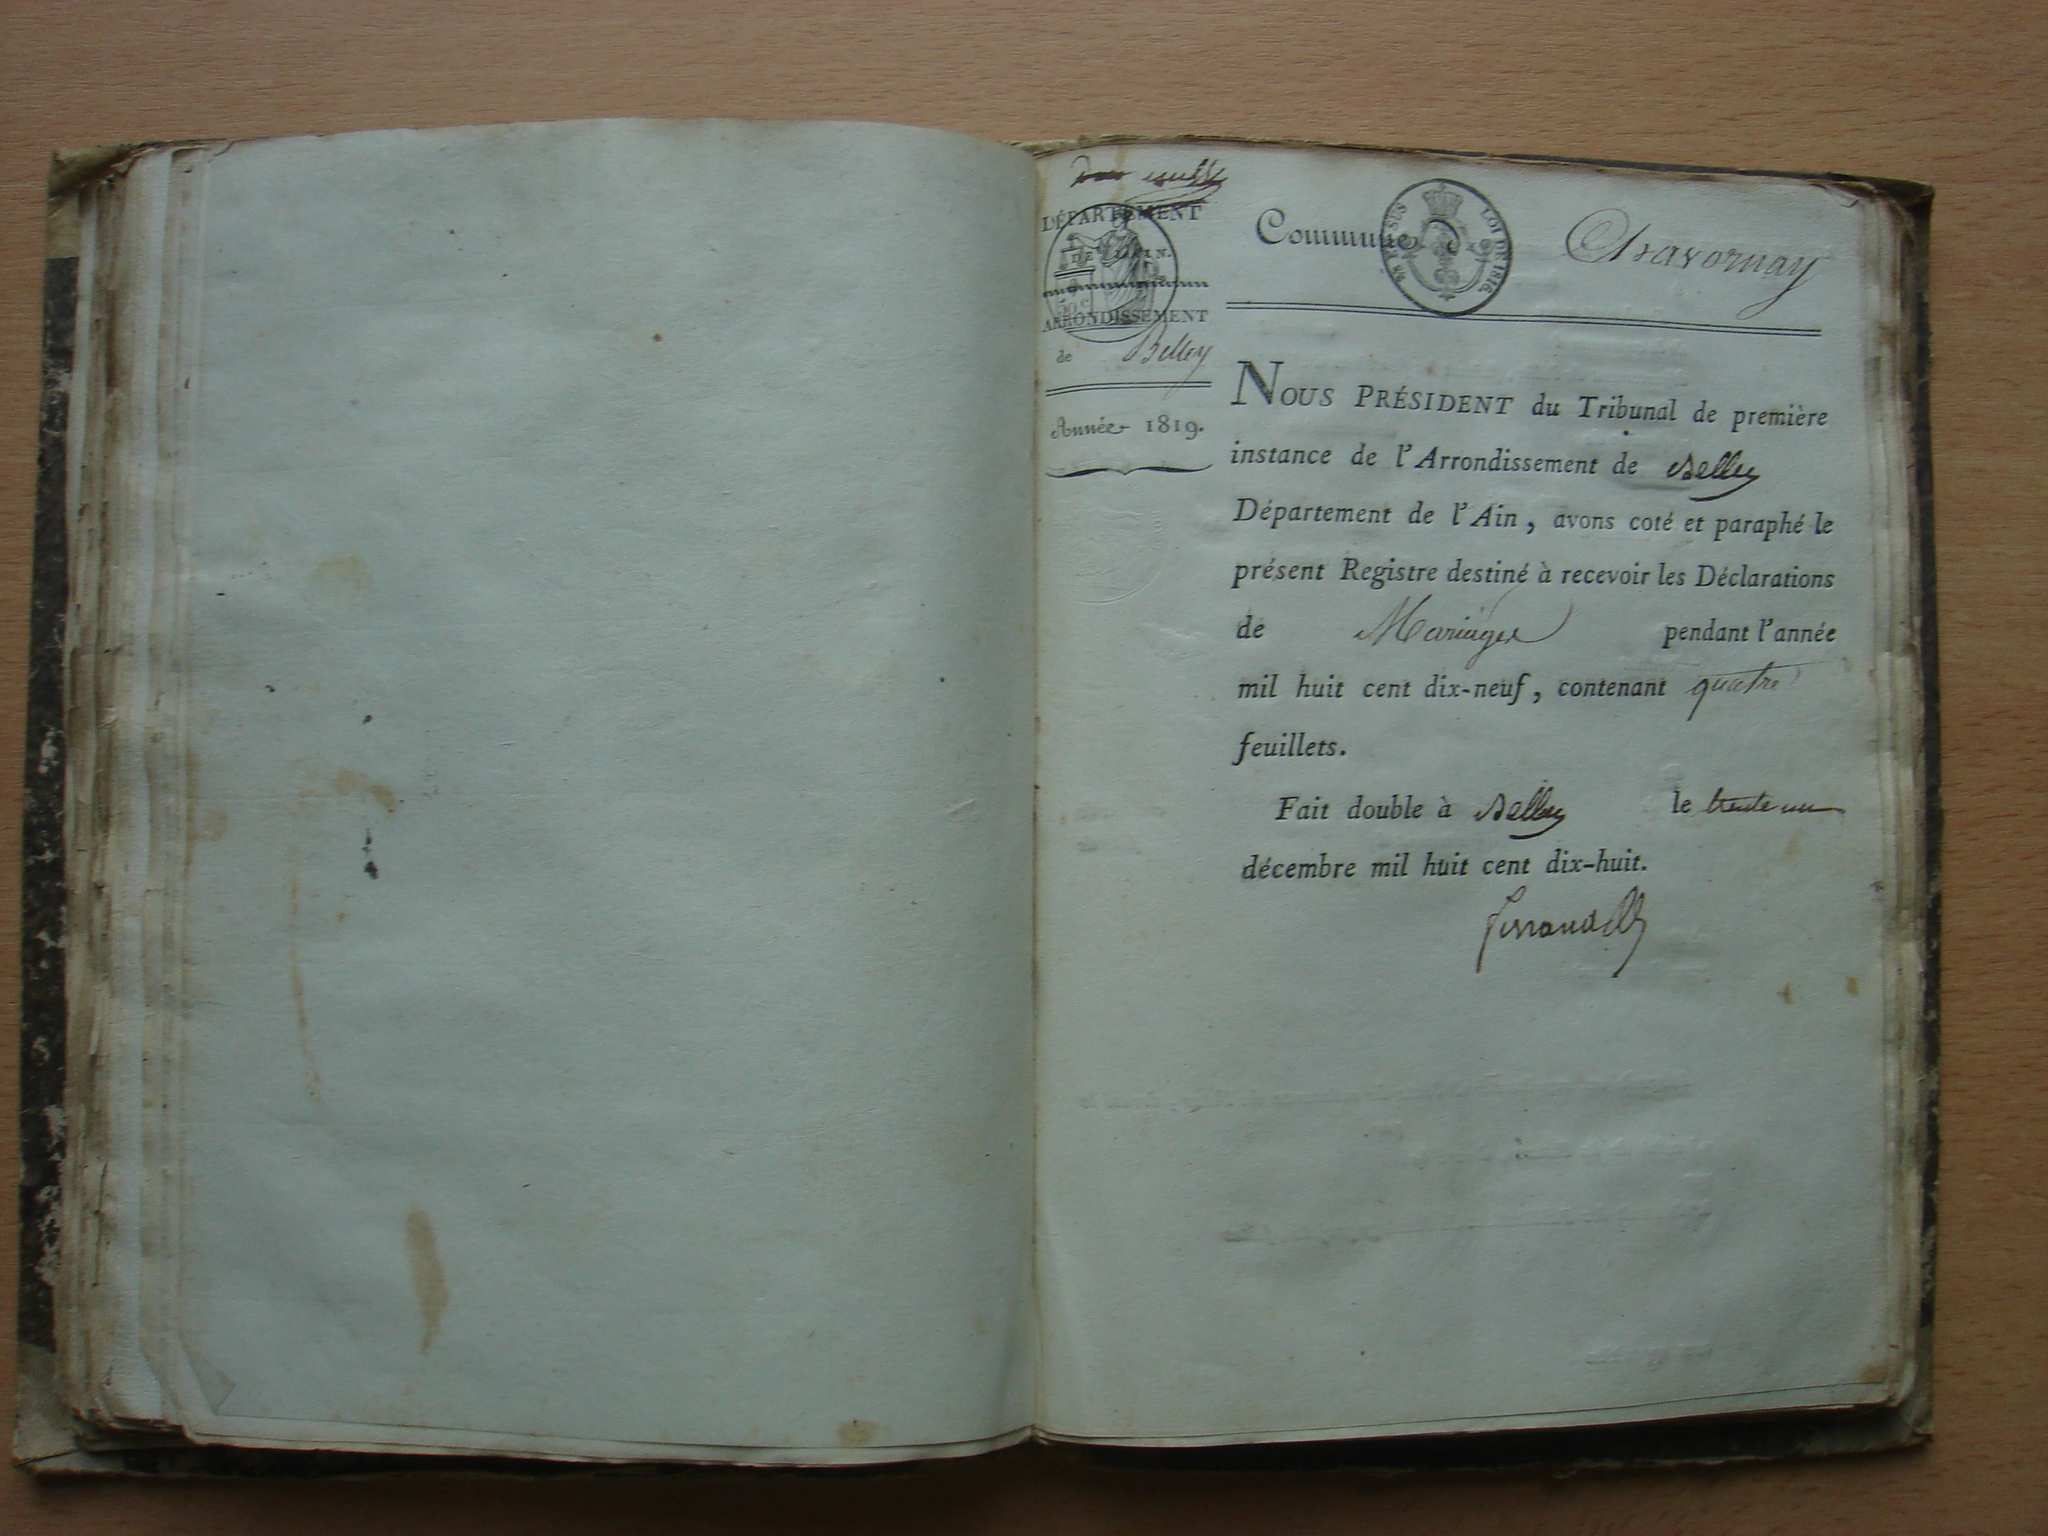 DÉPARTEMENT
DE L'AIN.
ARRONDISSEMENT
de Belley
Année 1819.
Commune de Chavornay
EN SUS LOI DE 1816.
50 c
NOUS PRÉSIDENT du Tribunal de première
instance de l'Arrondissement de Belley
Département de l'Ain, avons coté et paraphé le
présent Registre destiné à recevoir les Déclarations
de Mariages pendant l'année
mil huit cent dix-neuf, contenant quatre
feuillets.
Fait double à Belley le trente un
décembre mil huit cent dix-huit.